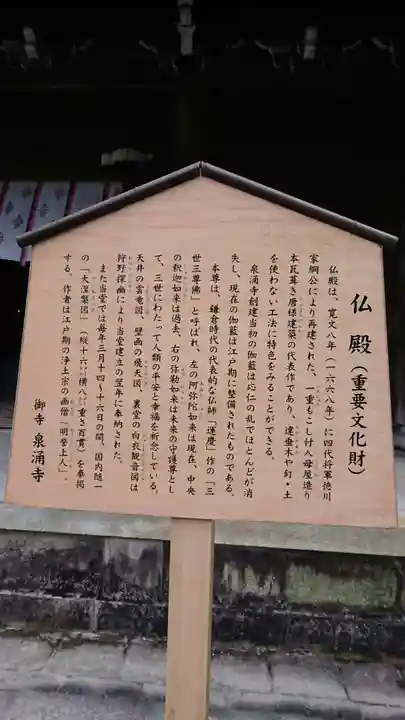 仏殿(重要文化財)
仏殿は、寛文八年(一六六八年)に四代将軍徳川
家綱公により再建された、一重もこし付入母屋造り
本瓦葺き唐様建築の代表作であり、建垂木や釘・土
を使わない工法に特色をみることができる。
泉涌寺創建当初の伽藍は応仁の乱でほとんどが消
失し、現在の伽藍は江戸期に整備されたものである。
本尊は、鎌倉時代の代表的な仏師「運慶」作の「三
世三尊佛」と呼ばれ、左の阿弥陀如来は現在、中央
の釈迦如来は過去、右の弥勒如来は未来の守護尊とし
て、三世にわたって人類の平安と幸福を祈念している。
天井の雲竜図、壁画の飛天図、裏堂の白衣観音図は
狩野探幽により当堂建立の翌年に奉納された。
また当堂では毎年三月十四〜十六日の間、国内随一
の「大涅槃図」(縦十六㍍横八㍍重さ百貫)を奉掲
する。作者は江戸期の浄土宗の画僧「明誉上人」。
御寺 泉涌寺